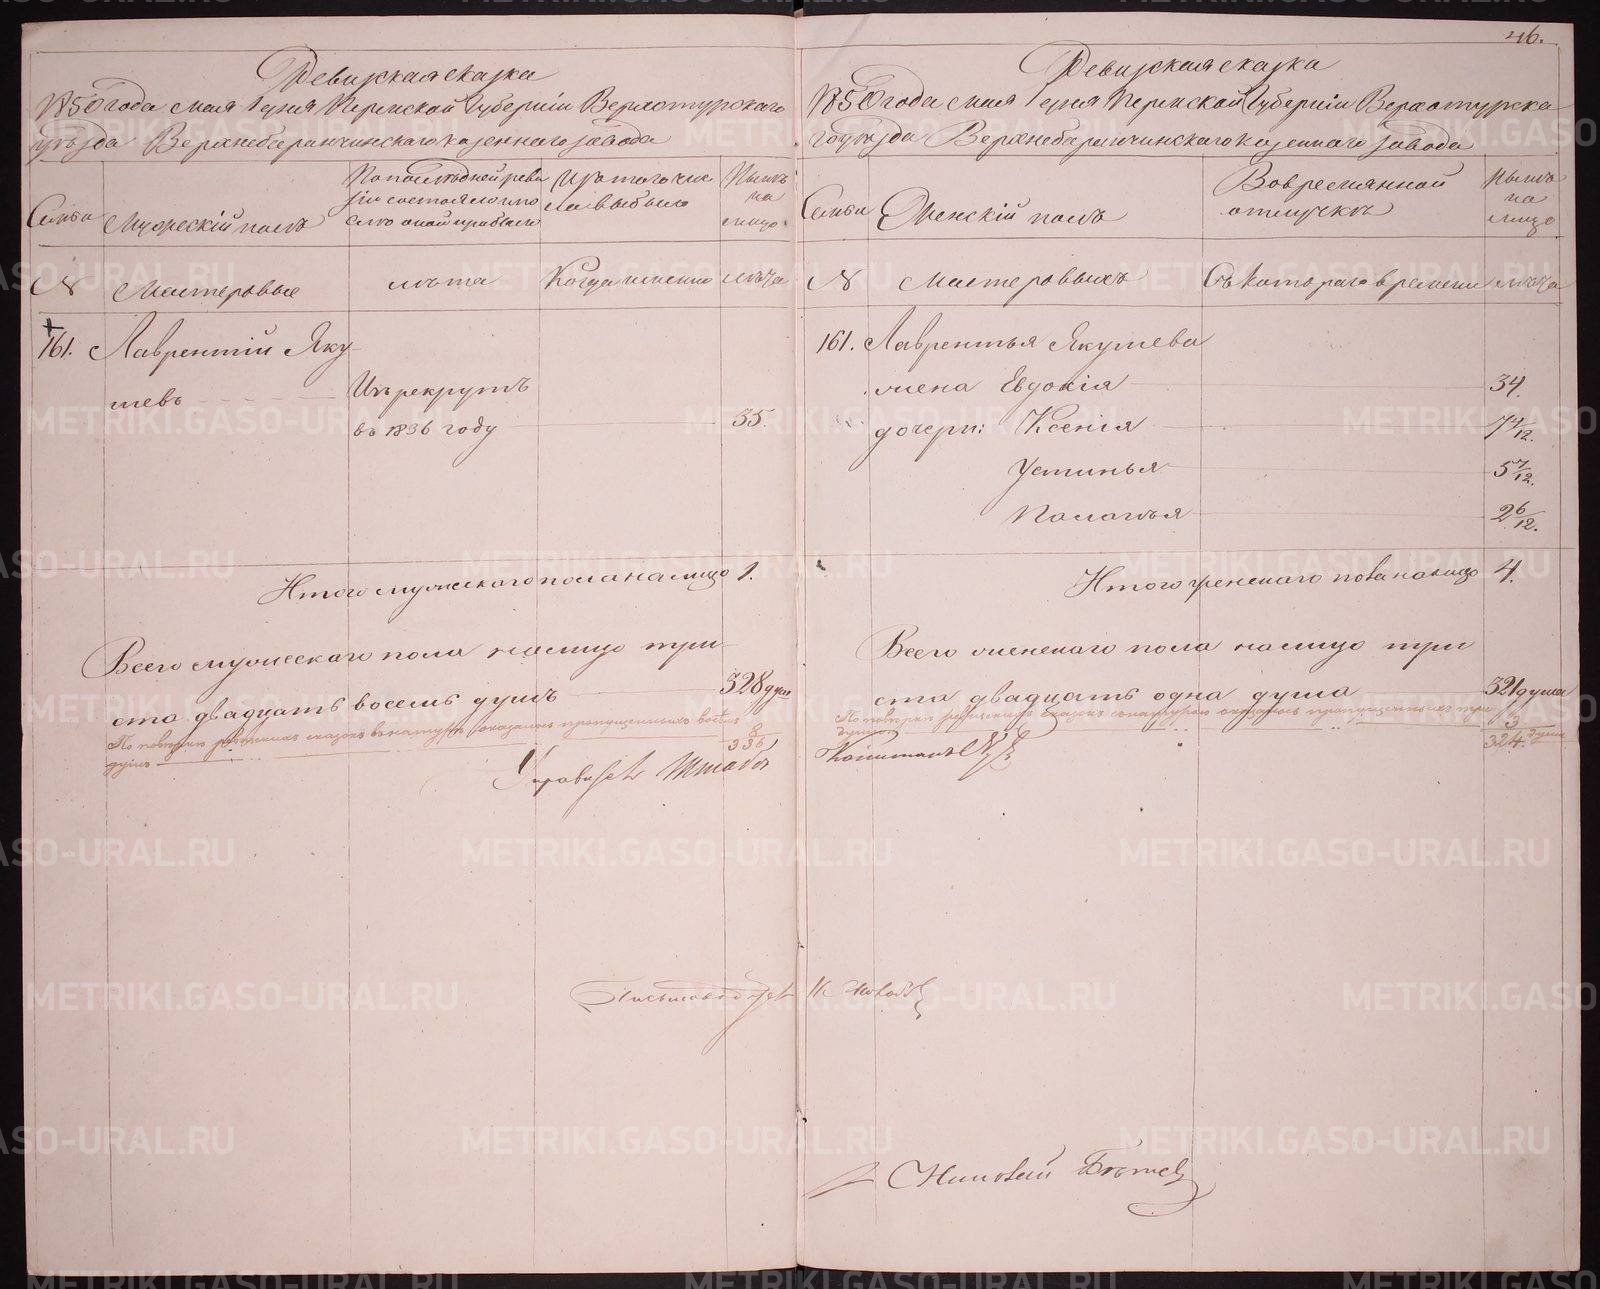 Ревизская сказка
1850 года мая 1 дня Пермской Губернiи Верхотурскаго
уѣзда Верхнебаранчинскаго казеннаго завода
Семьи
Мужескiй полъ
По последней реви
зiи состояло и по
слѣ оной прибыло
Изъ того чис
ла выбыло
Нынѣ
на
лицо
N
Мастеровые
лѣта
Когда именно
лѣта
161. Лаврентiй Яку
шевъ
Изъ рекрутъ
въ 1836 году
35.
Итого мужескаго пола на лицо 1.
Всего мужескаго пола на лицо три
ста двадцать восемь душъ 328 душ
По поверке ревизских сказок в натуре оказалось пропущенных восемь
душъ
8
336
Управитель Штабъ
Письмоводитель
46.
Ревизская сказка
1850 года мая 1 дня Пермской Губернiи Верхотурска
го уѣзда Верхнебаранчинскаго казеннаго завода
Семьи
Женскiй полъ
Во временной
отлучкѣ
Нынѣ
на
лицо
N
Мастеровыхъ
Съ котораго времени
лѣта
161. Лаврентья Якушева
жена Евдокiя 34.
дочери: Ксенiя 7 4/12.
Устинья 5 7/12.
Палагья 2 6/12.
Итого женскаго пола на лицо 4.
Всего женскаго пола на лицо три
ста двадцать одна душа 321 душа
По поверке ревизских сказок в натуре оказалось пропущенных три
души
3
324. души
Капитанъ
METRIKI.GASO-URAL.RU